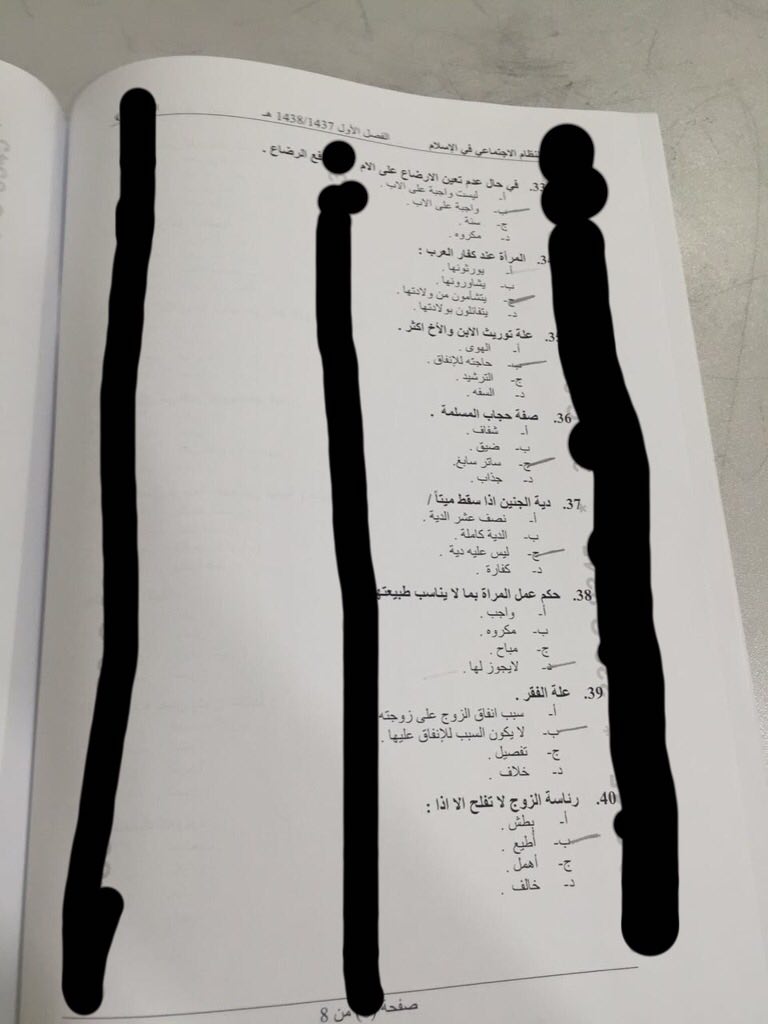 النظام الاجتماعي في الإسلام الفصل الأول 1438/1437 هـ
33. في حال عدم تعين الارضاع على الام الرضاع .
أ- ليست واجبة على الاب .
ب- واجبة على الاب .
ج- سنة .
د- مكروه .
34. المرأة عند كفار العرب :
أ- يورثونها .
ب- يشاورونها .
ج- يتشأمون من ولادتها .
د- يتفائلون بولادتها .
35. علة توريث الابن والأخ اكثر .
أ- الهوى .
ب- حاجته للإنفاق .
ج- الترشيد .
د- السفه .
36. صفة حجاب المسلمة .
أ- شفاف .
ب- ضيق .
ج- ساتر سابغ.
د- جذاب .
37. دية الجنين اذا سقط ميتاً /
أ- نصف عشر الدية .
ب- الدية كاملة .
ج- ليس عليه دية .
د- كفارة .
38. حكم عمل المراة بما لا يناسب
أ- واجب .
ب- مكروه .
ج- مباح .
د- لايجوز لها .
39. علة الفقر .
أ- سبب انفاق الزوج على زوجته
ب- لا يكون السبب للإنفاق عليها .
ج- تفصيل .
د- خلاف .
40. رئاسة الزوج لا تفلح الا اذا :
أ- بطش .
ب- أطيع .
ج- أهمل .
د- خالف .
صفحة من 8